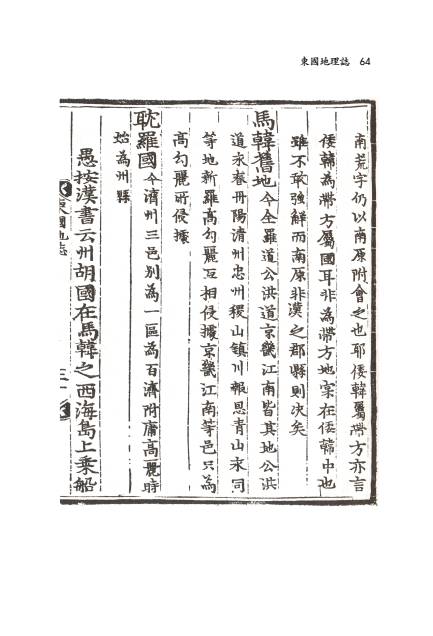 東國地理誌 64
南荒字仍以南原附會之也耶倭韓屬帶方亦言
倭韓為帶方屬國耳非為帶方地寀在倭韓中也
雖不敢強鮮而南原非漢之郡縣則決矣
馬韓舊地今全羅道公洪道京畿江南皆其地公洪
道永春丹陽淸州忠州稷山鎮川報恩青山未同
等地新羅高勾麗互相侵據京畿江南等邑只為
高勾麗所侵據
耽羅國今濟州三邑別為一區為百濟附庸高麗時
始為州縣
愚按漢書云州胡國在馬韓之西海島上乗船
東國地志